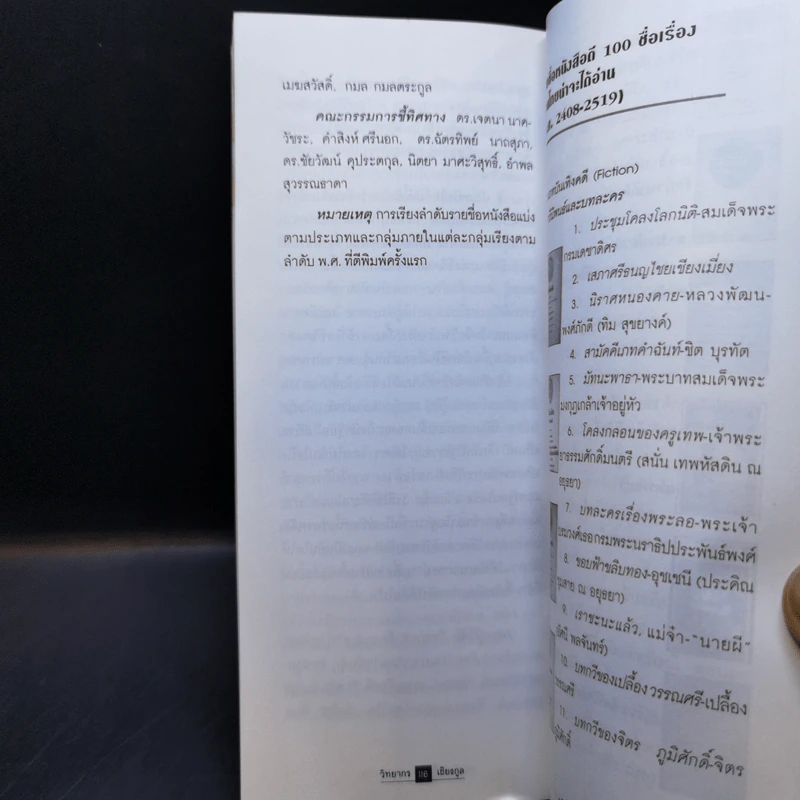 เมฆสวัสดิ์, กมล กมลตระกูล
คณะกรรมการชี้ทิศทาง ดร.เจตนา นาค-
วัชระ, คำสิงห์ ศรีนอก, ดร.ฉัตรทิพย์ นาถสุภา,
ดร.ชัยวัฒน์ คุประตกุล, นิตยา มาศะวิสุทธิ์, อำพล
สุวรรณธาดา
หมายเหตุ การเรียงลำดับรายชื่อหนังสือแบ่ง
ตามประเภทและกลุ่มภายในแต่ละกลุ่มเรียงตาม
ลำดับ พ.ศ. ที่ตีพิมพ์ครั้งแรก
วิทยากร 116 เชียงกูล
หนังสือดี 100 ชื่อเรื่อง
ไทยน่าจะได้อ่าน
2408-2519)
บันเทิงคดี (Fiction)
นิพนธ์และบทละคร
1. ประชุมโคลงโลกนิติ-สมเด็จพระ
กรมเดชาดิศร
2. เสภาศรีธนญไชยเชียงเมี่ยง
3. นิราศหนองคาย-หลวงพัฒน-
พงศ์ภักดี (ทิม สุขยางค์)
4. สามัคคีเภทคำฉันท์-ชิต บุรทัต
5. มัทนะพาธา-พระบาทสมเด็จพระ
มงกุฎเกล้าเจ้าอยู่หัว
6. โคลงกลอนของครูเทพ-เจ้าพระ
ยาธรรมศักดิ์มนตรี (สนั่น เทพหัสดิน ณ
อยุธยา)
7. บทละครเรื่องพระลอ-พระเจ้า
บรมวงศ์เธอ กรมพระนราธิปประพันธ์พงศ์
8. ขอบฟ้าขลิบทอง-อุชเชนี (ประคิณ
ชุมสาย ณ อยุธยา)
9. เราชะนะแล้ว, แม่จ๋า-"นายผี"
พลจันทร์)
10. บทกวีของเปลื้อง วรรณศรี-เปลื้อง
วรรณศรี
11. บทกวีของจิตร ภูมิศักดิ์-จิตร
ภูมิศักดิ์